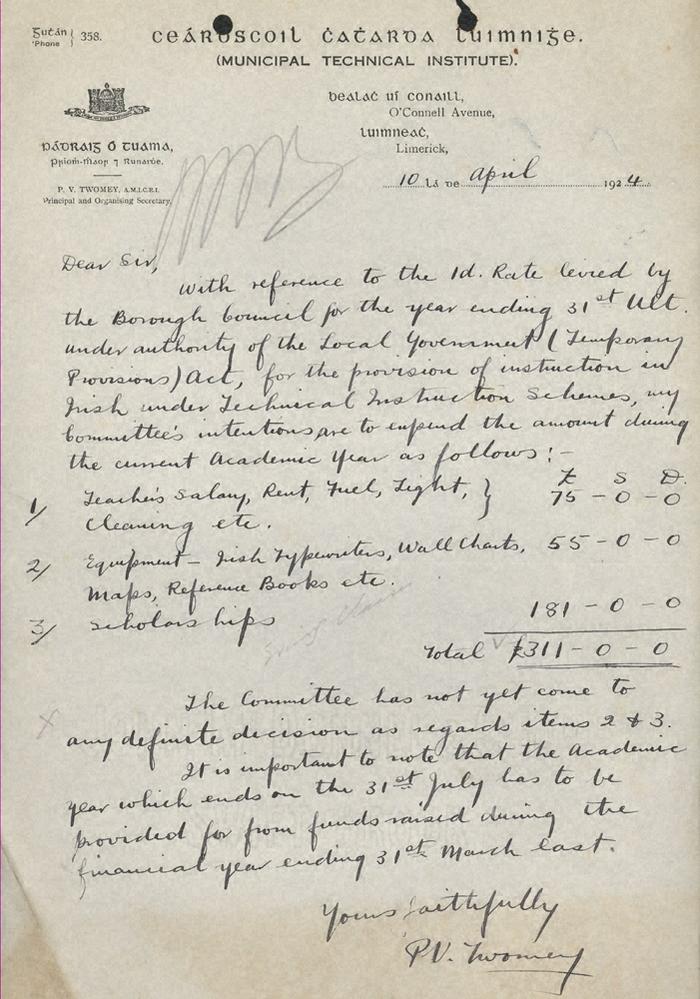 Gután } 358.
'Phone
ceárdscoil ċaṫarda luimniġe.
(MUNICIPAL TECHNICAL INSTITUTE).
bealaċ uí conaill,
O'Connell Avenue,
luimneaċ,
Limerick,
pádraig ó tuama,
Príoṁ-ṁaor ⁊ Runaróe.
P. V. TWOMEY, A.M.I.C.E.I.
Principal and Organising Secretary.
10 Lá de April 1924.
Dear Sir,
With reference to the 1d. Rate levied by
the Borough Council for the year ending 31st Ult.
under authority of the Local Government (Temporary
Provisions) Act, for the provision of instruction in
Irish under Technical Instruction Schemes, my
Committee's intentions are to expend the amount during
the current Academic Year as follows:-
£ S D.
1/ Teacher's Salary, Rent, Fuel, Light, } 75 - 0 - 0
Cleaning etc.
2/ Equipment - Irish Typewriters, Wall Charts, 55 - 0 - 0
Maps, Reference Books etc.
3/ Scholarships 181 - 0 - 0
Total £311 - 0 - 0
The Committee has not yet come to
x any definite decision as regards items 2 & 3.
It is important to note that the Academic
year which ends on the 31st July has to be
provided for from funds raised during the
financial year ending 31st March last.
Yours faithfully
P.V. Twomey